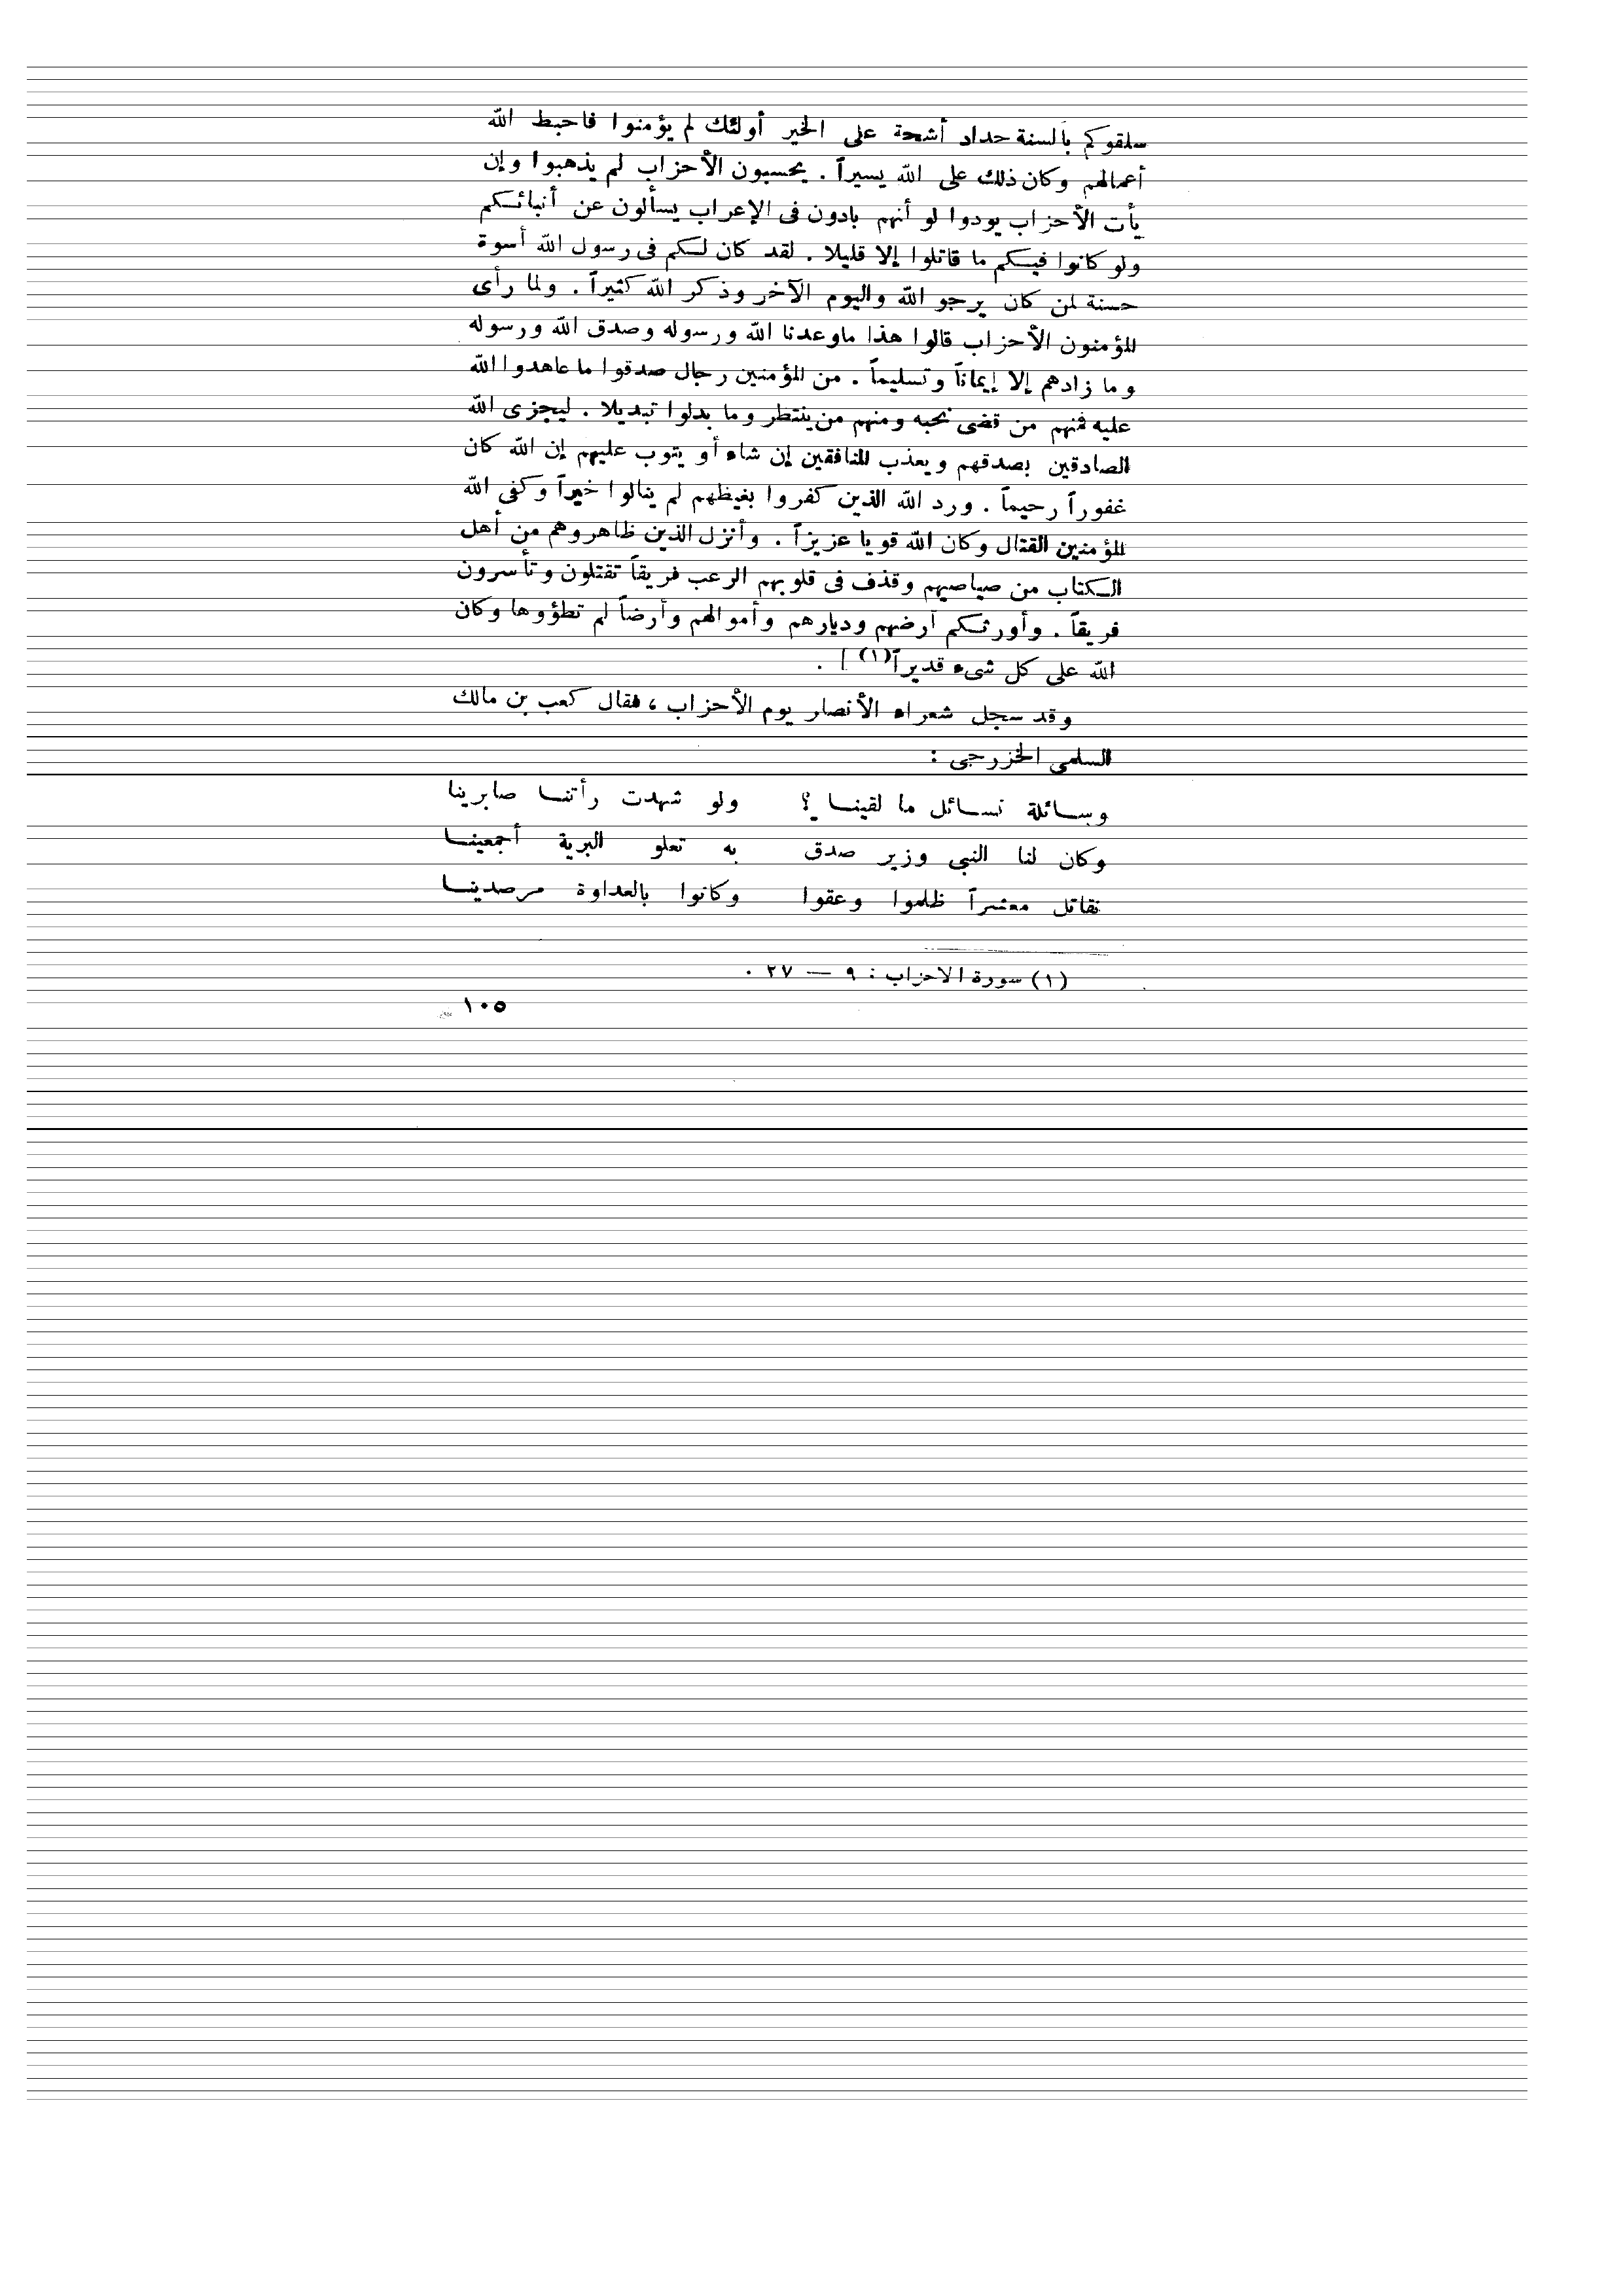 سلقوكم بألسنة حداد أشحة على الخير أولئك لم يؤمنوا فاحبط الله
أعمالهم وكان ذلك على الله يسيراً . يحسبون الأحزاب لم يذهبوا وإن
يأت الأحزاب يودوا لو أنهم بادون فى الإعراب يسألون عن أنبائكم
ولو كانوا فيكم ما قاتلوا إلا قليلا . لقد كان لكم فى رسول الله أسوة
حسنة لمن كان يرجو الله واليوم الآخر وذكر الله كثيراً . ولما رأى
المؤمنون الأحزاب قالوا هذا ماوعدنا الله ورسوله وصدق الله ورسوله
وما زادهم إلا إيماناً وتسليماً . من المؤمنين رجال صدقوا ما عاهدوا الله
عليه فمنهم من قضى نحبه ومنهم من ينتظر وما بدلوا تبديلا . ليجزى الله
الصادقين بصدقهم ويعذب المنافقين إن شاء أو يتوب عليهم إن الله كان
غفوراً رحيماً . ورد الله الذين كفروا بغيظهم لم ينالوا خيراً وكفى الله
المؤمنين القتال وكان الله قويا عزيزاً . وأنزل الذين ظاهروهم من أهل
الكتاب من صياصيهم وقذف فى قلوبهم الرعب فريقاً تقتلون وتأسرون
فريقاً . وأورثكم أرضهم وديارهم وأموالهم وأرضاً لم تطؤوها وكان
الله على كل شىء قديراً(١) ] .
وقد سجل شعراء الأنصار يوم الأحزاب ، فقال كعب بن مالك
السلمى الخزرجى :
وسائلة تسائل ما لقينا ؟ ولو شهدت رأتنا صابرينا
وكان لنا النبى وزير صدق به تعلو البرية أجمعينا
نقاتل معشراً ظلموا وعقوا وكانوا بالعداوة مرصدينا
(١) سورة الاحزاب : ٩ — ٢٧ .
١٠٥